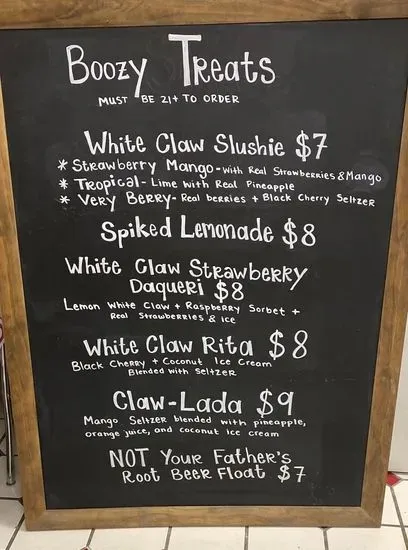 Boozy Treats
MUST BE 21+ TO ORDER
White Claw Slushie $7
* Strawberry Mango - with Real Strawberries & Mango
* Tropical - Lime with Real Pineapple
* Very Berry - Real berries + Black Cherry Seltzer
Spiked Lemonade $8
White Claw Strawberry
Daqueri $8
Lemon White Claw + Raspberry Sorbet +
Real Strawberries & ice
White Claw Rita $8
Black Cherry + Coconut Ice Cream
Blended with Seltzer
Claw-Lada $9
Mango Seltzer blended with pineapple,
orange juice, and coconut ice cream
NOT Your Father's
Root Beer Float $7